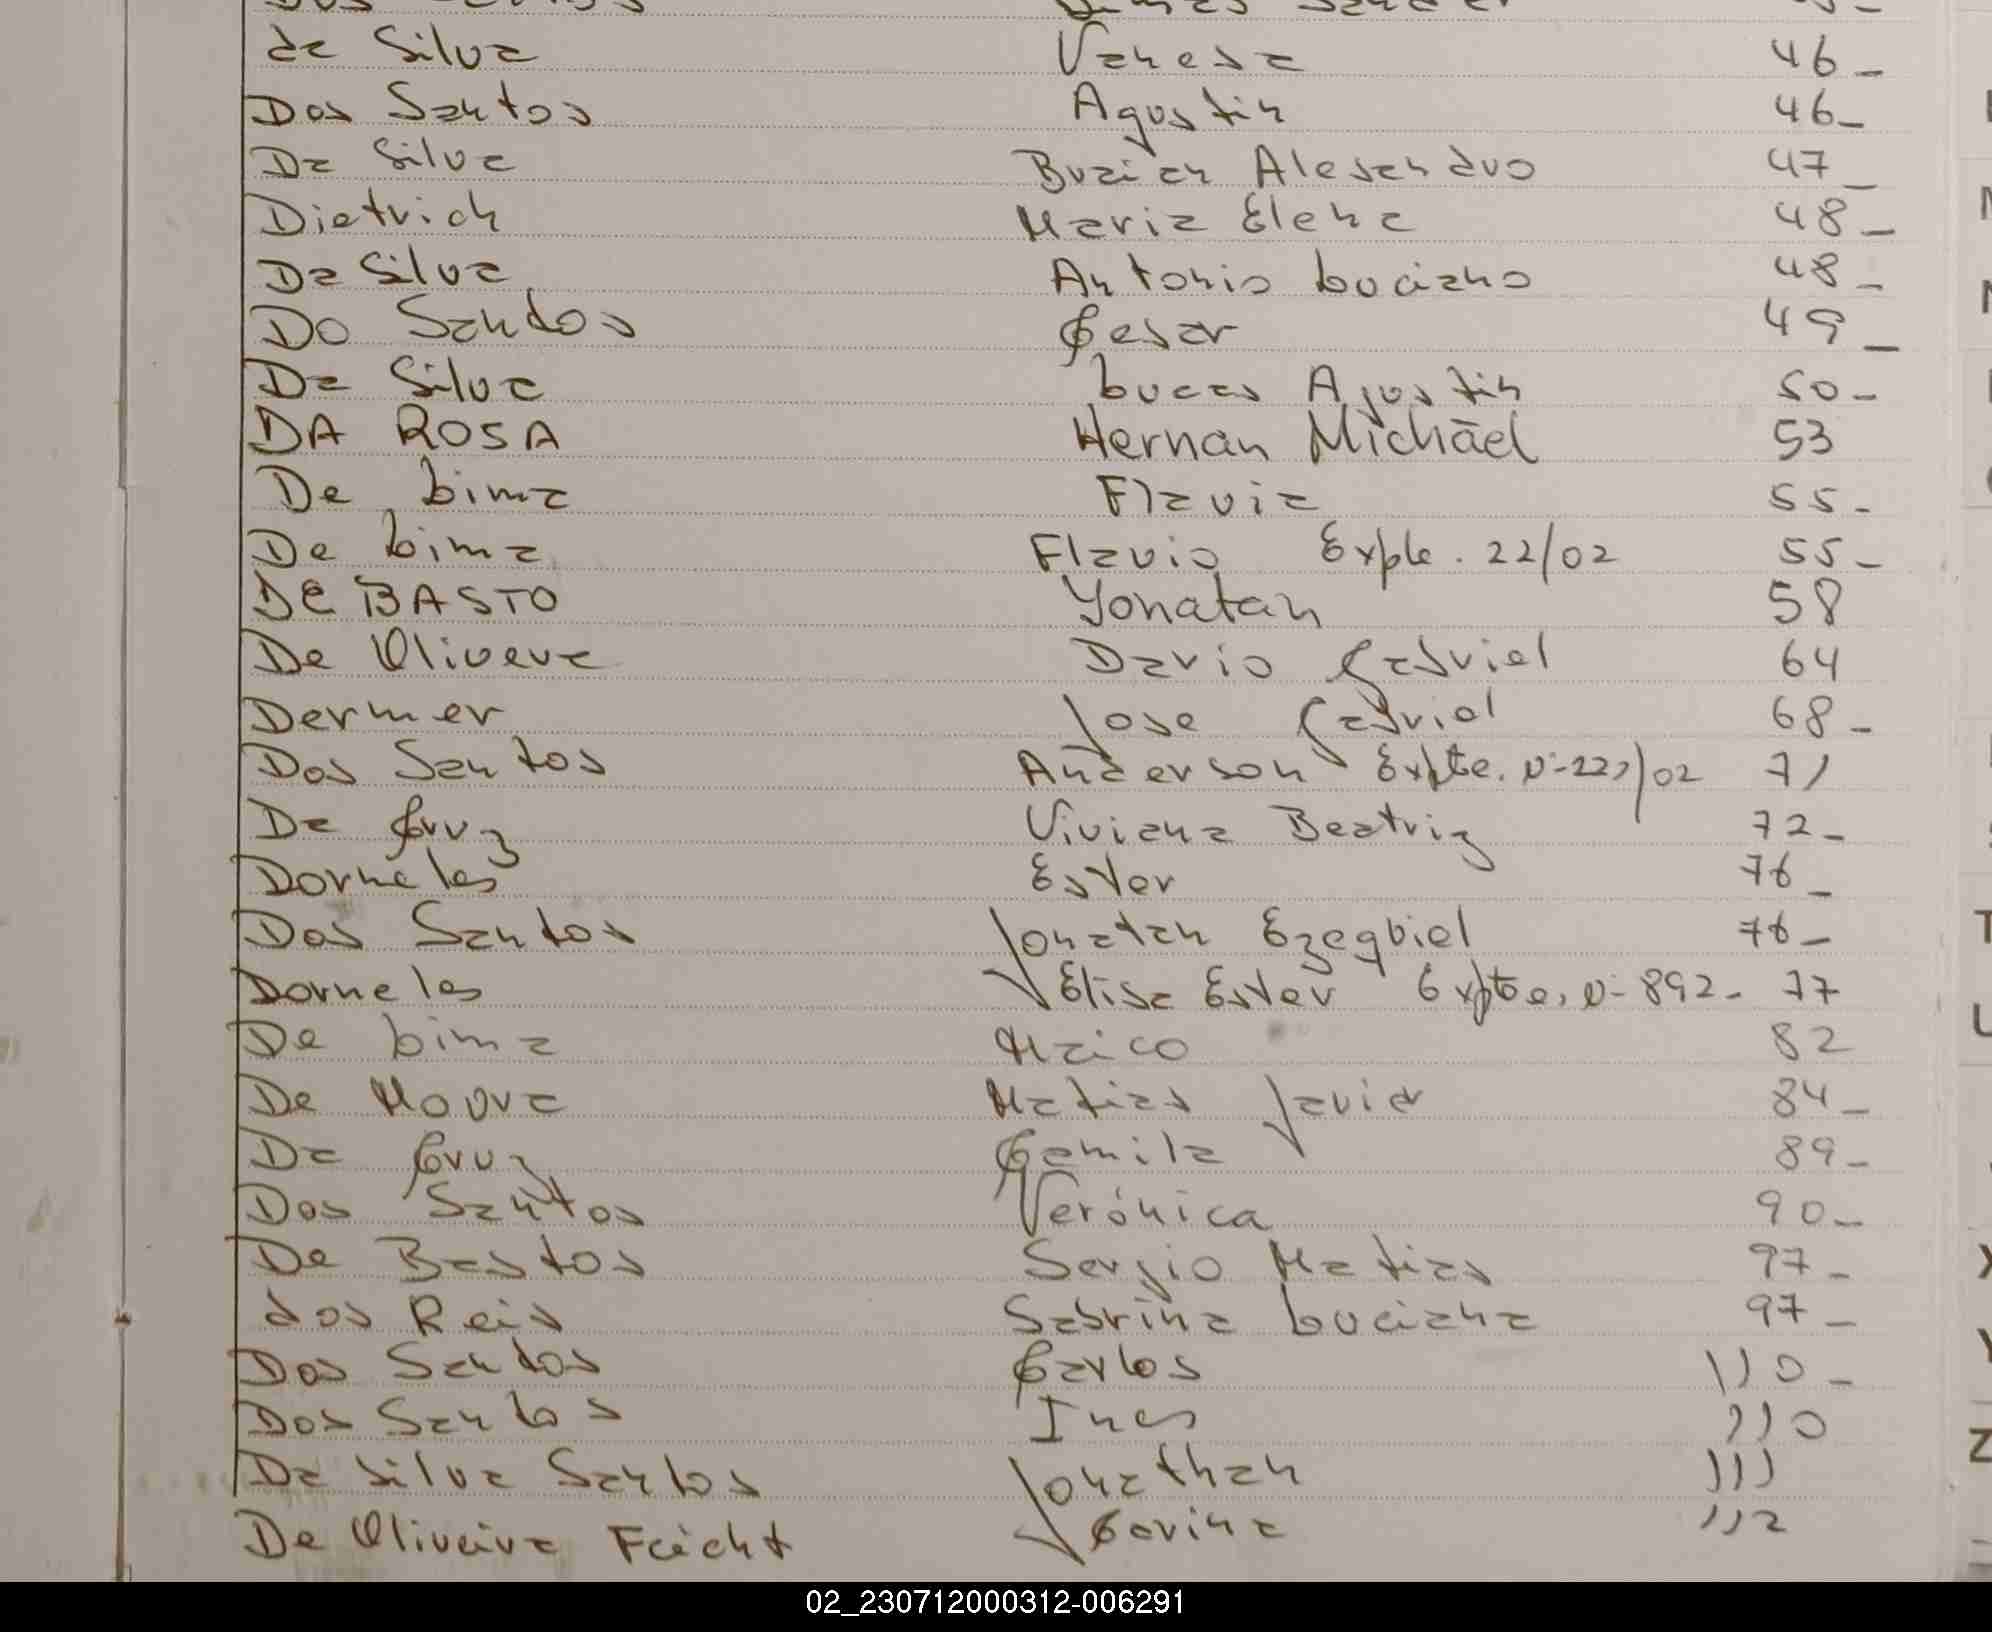 da Silva Vanesa 46-
Dos Santos Agustin 46-
Da Silva Brian Alesandro 47-
Dietrich Maria Elena 48-
Da Silva Antonio Luciano 48-
Do Santos Cesar 49-
Da Silva Lucas Agustin 50-
DA ROSA Hernan Michäel 53
De Lima Flavia 55-
De Lima Flavio Expte. 22/02 55-
DE BASTO Yonatan 58
De Olivera Dario Gabriel 64
Dermer Jose Gabriel 68-
Dos Santos Anderson Expte. Nº 221/02 71
Da Cruz Viviana Beatriz 72-
Dorneles Ester 76-
Dos Santos Jonatan Ezequiel 76-
Dorneles Elisa Ester Expte. Nº 892- 77
De Lima Maico 82
De Moura Matias Javier 84-
Da Cruz Camila 89-
Dos Santos Verónica 90-
De Bastos Sergio Matias 97-
dos Reis Sabrina Luciana 97-
Dos Santos Carlos 110-
Dos Santos Ines 110
Da Silva Santos Jonathan 111
De Oliveira Feicht Corina 112
02_230712000312-006291
T
U
X
Y
Z